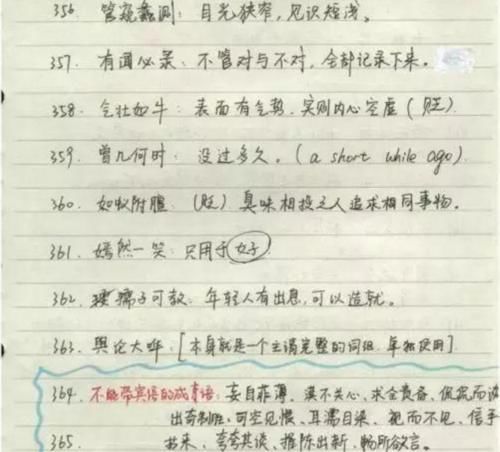 356. 管窥蠡测：目光狭窄，见识短浅。
357. 有闻必录：不管对与不对，全部记录下来。
358. 气壮如牛：表面有气势，实则内心空虚（贬）
359. 曾几何时：没过多久。（a short while ago）
360. 如蚁附膻：（贬）臭味相投之人追求相同事物。
361. 嫣然一笑：只用于女子
362. 孺子可教：年轻人有出息，可以造就。
363. 舆论大哗：[本身就是一个主谓完整的词组，单独使用]
364. 不能带宾语的成语：妄自菲薄、漠不关心、求全责备、侃侃而谈
出奇制胜、司空见惯、耳濡目染、视而不见、信手
365. 拈来、夸夸其谈、推陈出新、畅所欲言。